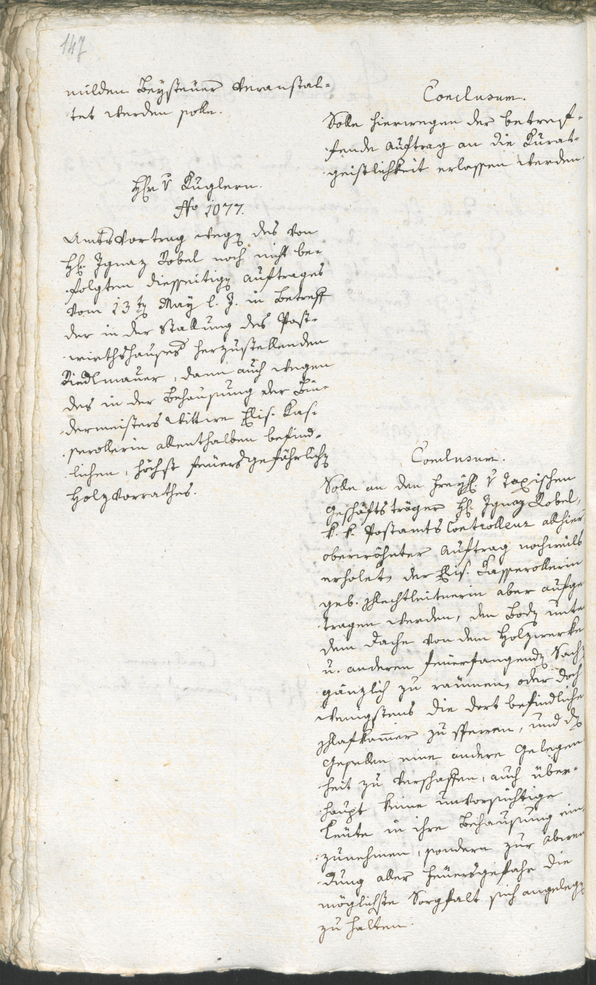 147
milden Beysteuer veranstal-
tet werden solle.
Conclusum.
Solle hierwegen der betref-
fende Auftrag an die Kurat-
geistlichkeit erlassen werden
HH. v Kuglern.
No 1077.
Amtsvortrag wegen des von
HH. Ignaz Robel noch nicht be-
folgten diesseitigen Auftrages
vom 13ten May l. J. in Betreff
der in der Stallung des Post-
wirthshauses herzustellenden
Riedlmauer, dann auch wegen
des in der Behausung der Bin-
dermeisters Wittwe Elis. Kas-
serollerin allenthalben befind-
lichen, höchst feuersgefährlichen
Holzvorrathes.
Conclusum.
Solle an den freyh. v Taxischen
Geschäftsträger HH. Ignaz Robel,
k. k. Postamts Controlleur allhier
oberwähnter Auftrag nochmals
erholet, der Elis. Kasserollerin
geb. aber aufge-
tragen werden, den Boden unter
dem Dache von dem Holzwerke
u. anderen feuerfangenden Sachen
gänzlich zu räumen, oder doch
wenigstens die dort befindliche
Schlafkammer zu sperren, und den
Gesellen eine andere Gelegen-
heit zu verschaffen, auch über-
haupt keine unvorsichtige
Leute in ihre Behausung ein
zunehmen, sondern zur Abwen-
dung aller Feuersgefahr die
möglichste Sorgfalt sich angelegen
zu halten.